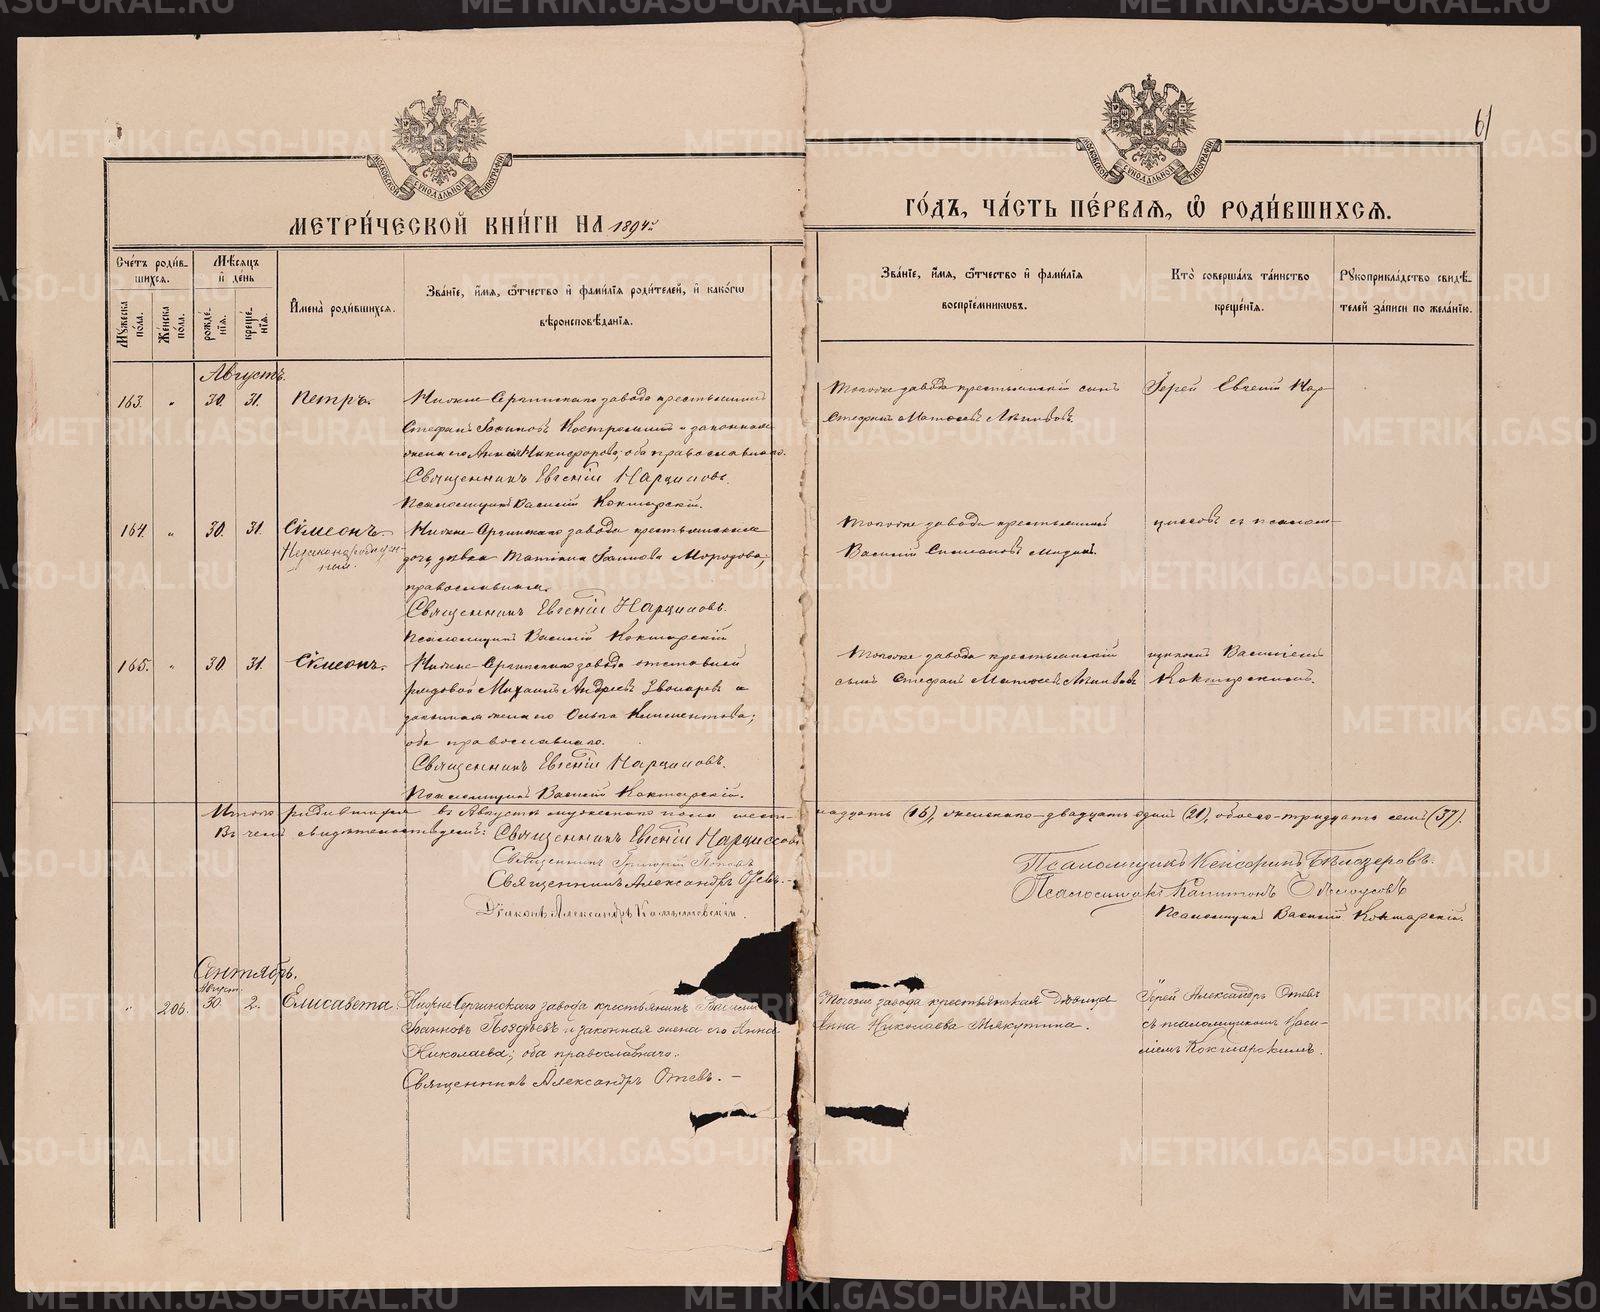 61
МЕТРИ́ЧЕСКОЙ КНИ́ГИ НА 1894 г.
ГО́ДЪ, ЧА́СТЬ ПЕ́РВАЯ, Ѡ РОДИ́ВШИХСЯ.
Сче́тъ роди́в-
шихся.
Мꙋ́жеска по́ла.
Же́нска по́ла.
Мѣ́сяцъ и де́нь
рожде-
нїя.
креще-
нїя.
И́мена роди́вшихся.
Зва́нїе, и́мя, ѻ́тчество и фами́лїя роди́телей, и како́гѡ
вѣроисповѣ́данїя.
Зва́нїе, и́мя, ѻ́тчество и фами́лїя
воспрїе́мниковъ.
Кто̀ соверша́лъ та́инство
креще́нїя.
Рꙋкоприкла́дство свидѣ́-
телей за́писи по жела́нїю.
Августъ.
163. " 30. 31. Петръ.
Нижне-Сергинскаго завода крестьянинъ
Стефанъ Іоанновъ Костроминъ и законная
жена его Анна Никифорова, оба православнаго.
Священникъ Евгеній Нарциссовъ.
Псаломщикъ Василій Кокшарскій.
Тогоже завода крестьянскій сынъ
Стефанъ Матѳеевъ
Іерей Евгеній Нар-
164. " 30. 31. Сѵмеонъ.
Незаконнорожден-
ный.
Нижне-Сергинскаго завода крестьянская
дочь девка Татіана Іоаннова
православная.
Священникъ Евгеній Нарциссовъ.
Псаломщикъ Василій Кокшарскій
Тогоже завода крестьянинъ
Василій
циссовъ съ псалом-
165. " 30 31. Сѵмеонъ.
Нижне-Сергинскаго завода отставной
рядовой Михаилъ Андреевъ Звонаревъ и
законная жена его Ольга Климентова;
оба православнаго.
Священникъ Евгеній Нарциссовъ.
Псаломщикъ Василій Кокшарскій.
Тогоже завода крестьянскій
сынъ Стефанъ Матѳеевъ
щикомъ Василіемъ
Кокшарскимъ.
Итого родившихся въ Августѣ мужескаго пола шест-
надцать (16), женскаго-двадцать одна (21), обоего-тридцать семь (37).
Въ чемъ и свидѣтельствуемъ: Священникъ Евгеній Нарциссовъ
Священникъ Григорій Поповъ
Священникъ Александръ Отевъ. -
Діаконъ Александръ
Псаломщикъ Кенсоринъ Бѣлозеровъ.
Псаломщикъ Капитонъ Бѣлоусовъ
Псаломщикъ Василій Кокшарскій.
Сентябрь.
Август.
" 206. 30. 2. Елисавета
Нижне-Сергинскаго завода крестьянинъ Василій
Іоанновъ Поздѣевъ и законная жена его Анна
Николаева; оба православнаго.
Священникъ Александръ Отевъ. -
Тогоже завода крестьянская дѣвица
Анна Николаева Мякутина.
Іерей Александръ Отевъ
съ псаломщикомъ Васи-
ліемъ Кокшарскимъ.
METRIKI.GASO-URAL.RU